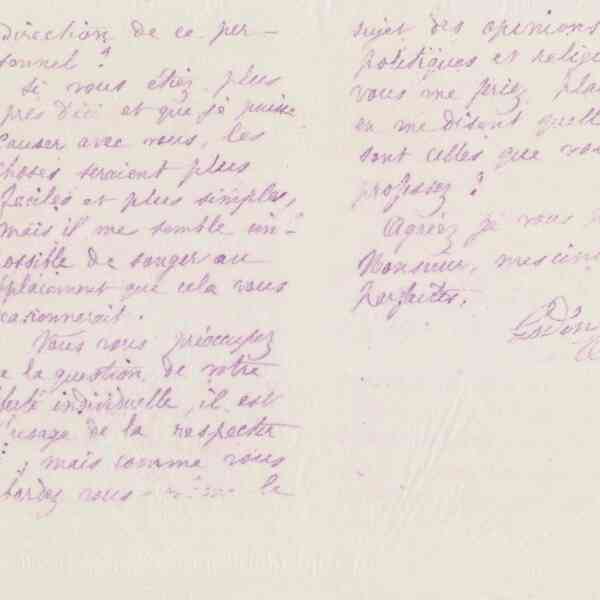 direction de ce per-
sonnel?
Si vous étiez plus
près d'ici et que je puisse
causer avec vous, les
choses seraient plus
faciles et plus simples,
mais il me semble im-
possible de songer au
déplacement que cela vous
occasionnerait.
Vous vous préoccupez
de la question de votre
liberté individuelle, il est
d'usage de la respecter
, mais comme vous
abordez vous-même le
sujet des opinions
politiques et relig
vous me priez
en me disant quell
sont celles que vou
professez?
Agréez je vous
Monsieur, mes
parfaites.